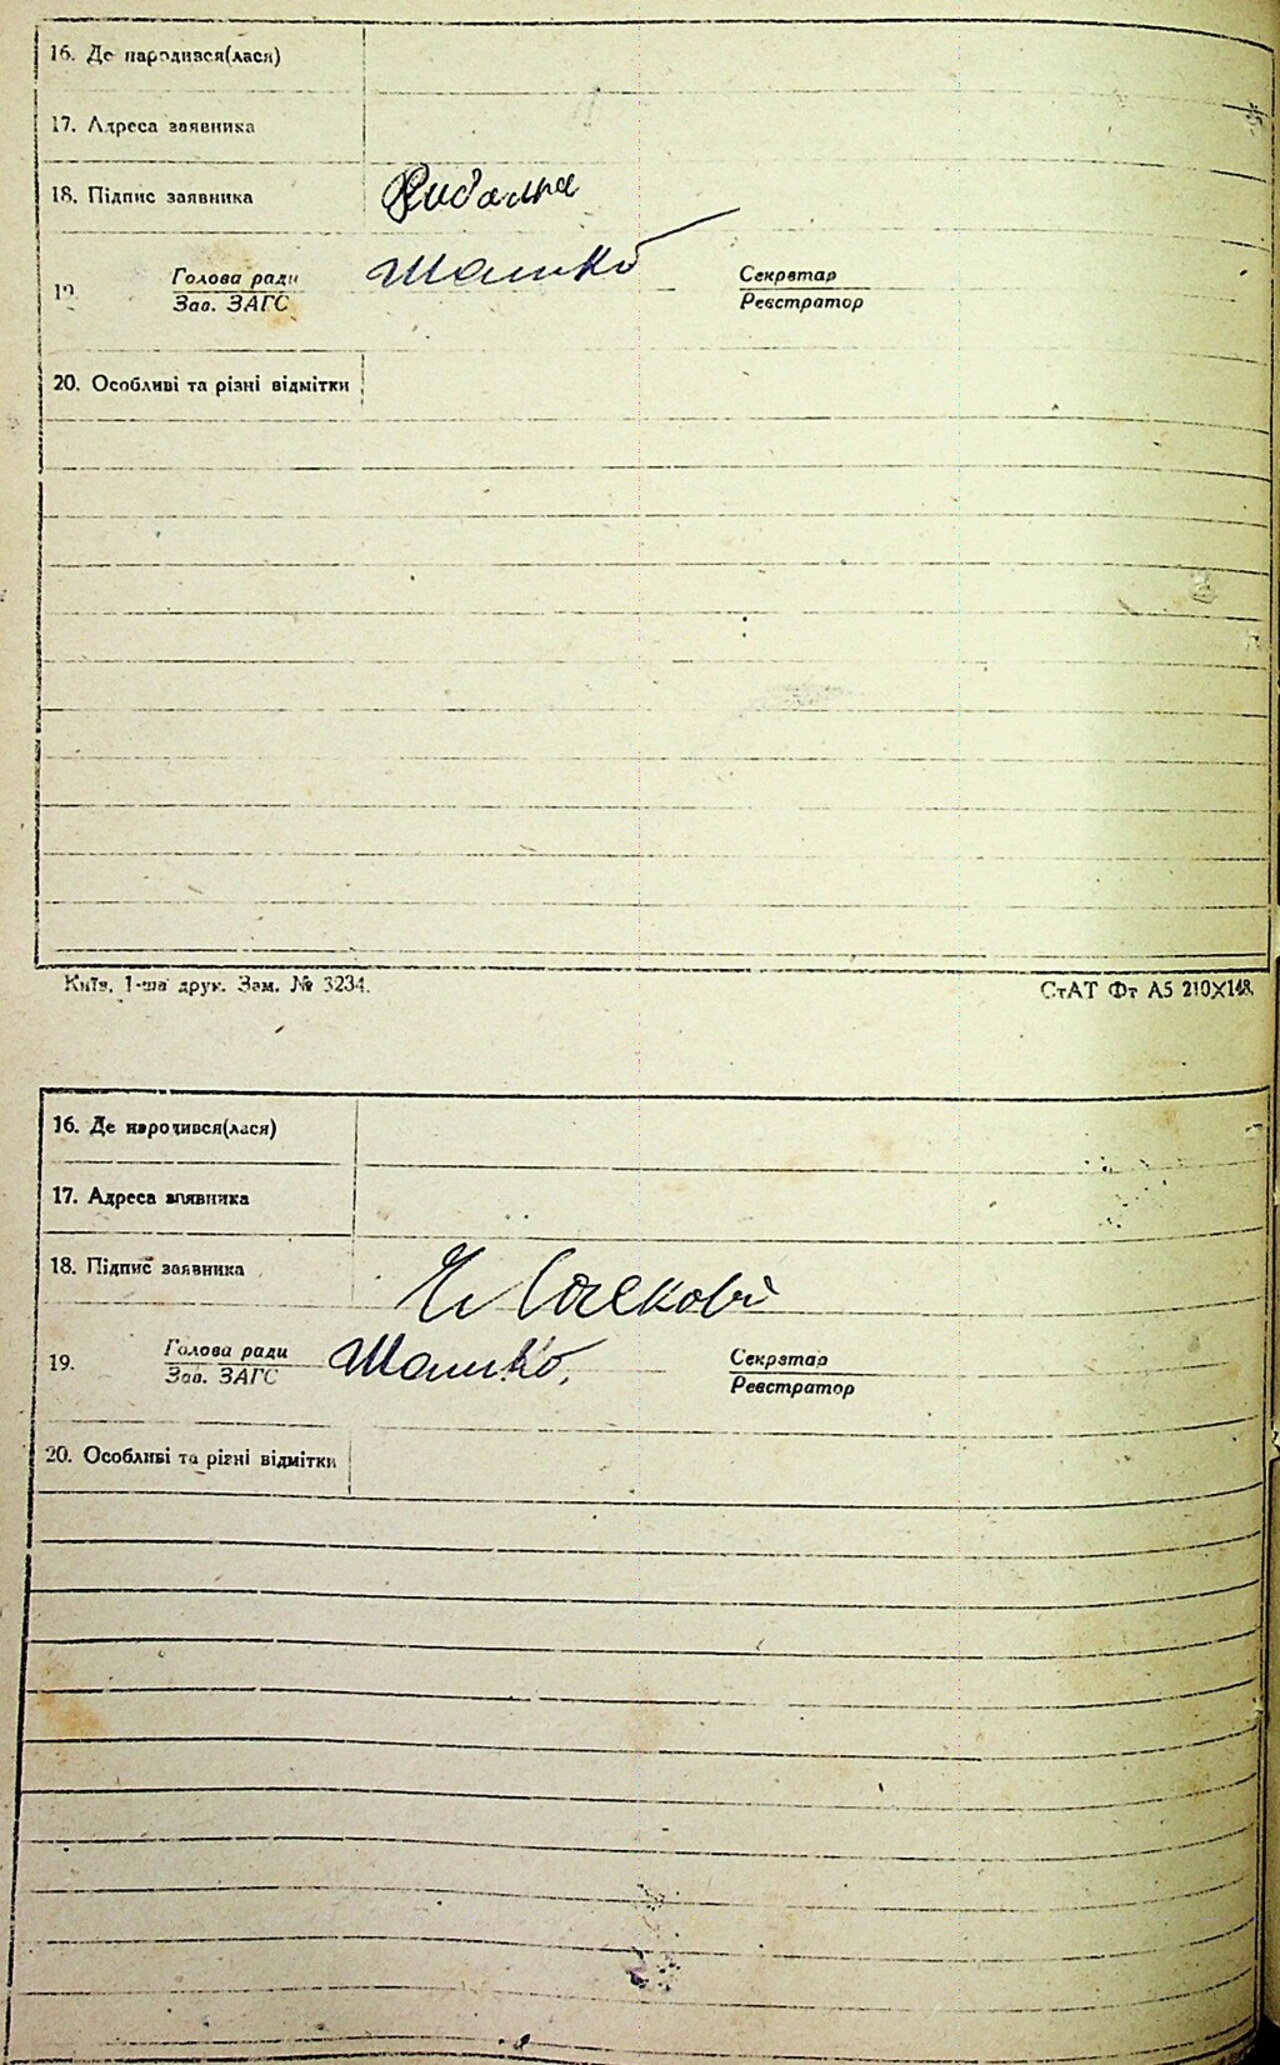 16. Де народився(лася)
17. Адреса заявника
18. Підпис заявника
Голова ради Секретар
19.
Зав. ЗАГС Реєстратор
20. Особливі та різні відмітки
Київ, 1-ша друк. Зам. № 3234. СтАТ Фт А5 210X148
16. Де народився(лася)
17. Адреса заявника
18. Підпис заявника
Голова ради Секретар
19.
Зав. ЗАГС Реєстратор
20. Особливі та різні відмітки